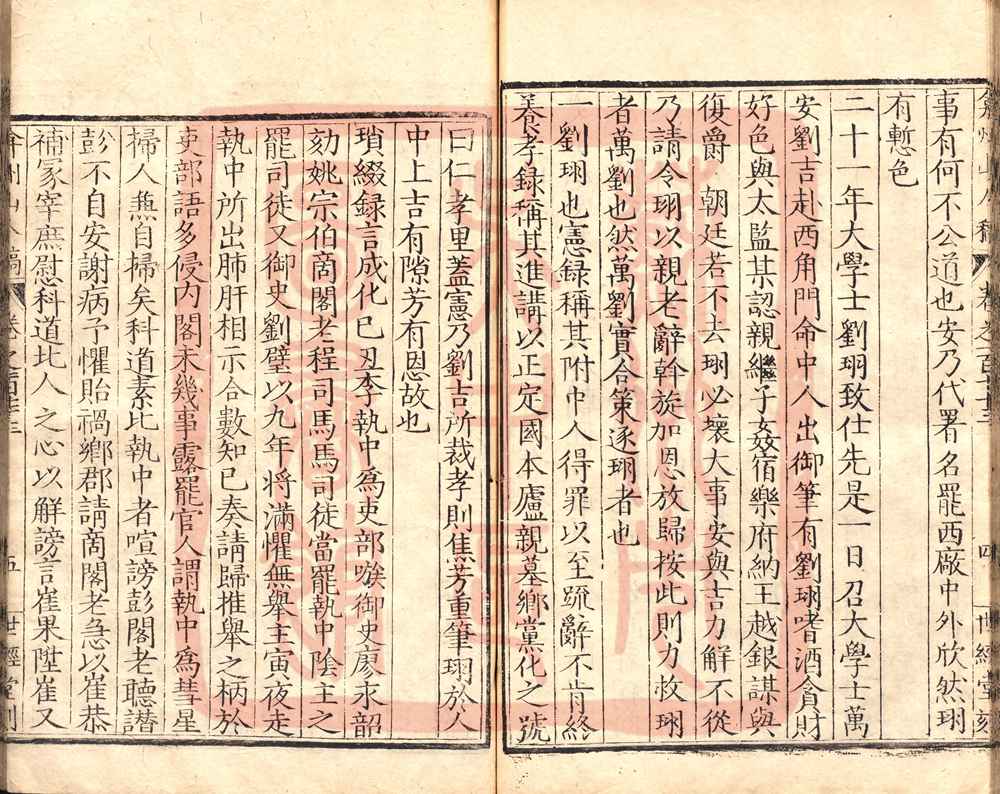 事有何不公道也安乃代署名罷西廠中外欣然珝
有慙色
二十一年大學士劉珝致仕先是一日召大學士萬
安劉吉赴西角門命中人出御筆有劉珝嗜酒貪財
好色與太監某認親繼子姦宿樂府納王越銀謀與
復爵 朝廷若不去珝必壞大事安與吉力解不從
乃請令珝以親老辭幹旋加恩放歸按此則力救珝
者萬劉也然萬劉實合策逐珝者也
一 劉珝也憲録稱其附中人得罪以至疏辭不肯終
養孝録稱其進講以正定國本廬親墓鄉黨化之號
曰仁孝里蓋憲乃劉吉所裁孝則焦芳重筆珝於人
中上吉有隙芳有恩故也
瑣綴録言成化己丑李執中爲吏部嗾御史廖永韶
劾姚宗伯啇閣老程司馬馬司徒當罷執中陰主之
罷司徒又御史劉璧以九年将滿懼無舉主寅夜走
執中所出肺肝相示合數知已奏請歸推舉之柄於
吏部語多侵内閣未幾事露罷官人謂執中爲彗星
掃人焦自掃矣科道素比執中者喧謗彭閣老聽譖
彭不自安謝病予懼貽禍鄉郡請啇閣老急以崔恭
補冢宰庶慰科道比人之心以解謗言崔果陞崔又
弇州山人稿 卷之百 三
五 世經堂刻